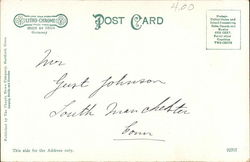 4.00
LITHO-CHROME
Germany
POST CARD
Postage
United States
and Island Possessions,
Cuba, Canada and
Mexico
ONE CENT.
For all other
Countries
TWO CENTS
Mr
Gust Johnson
South Manchester
Conn
This side for the Address only.